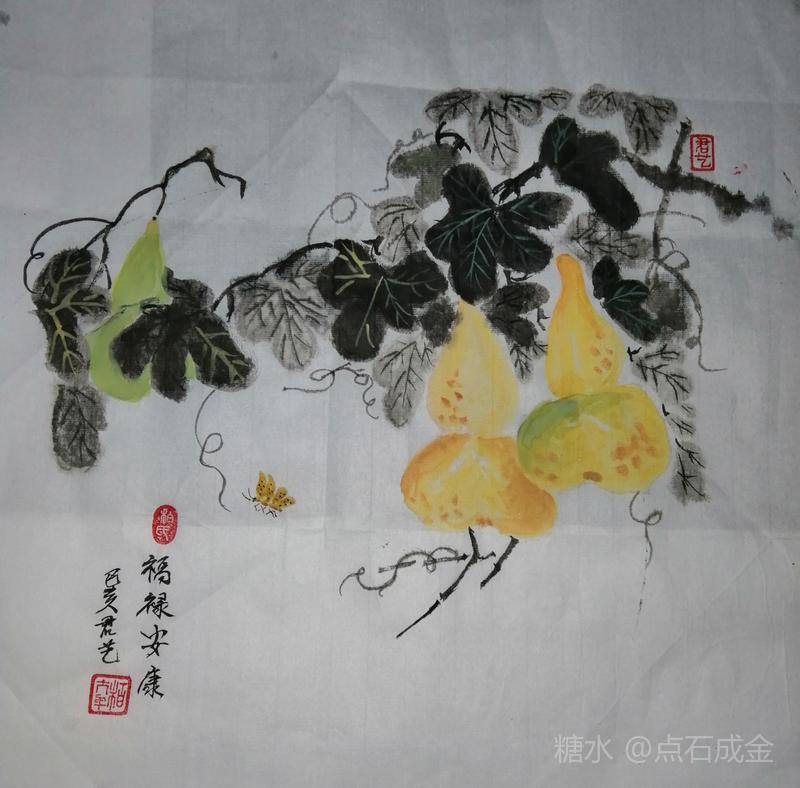 君艺
柏氏
福禄安康
己亥君艺
糖水 @点石成金